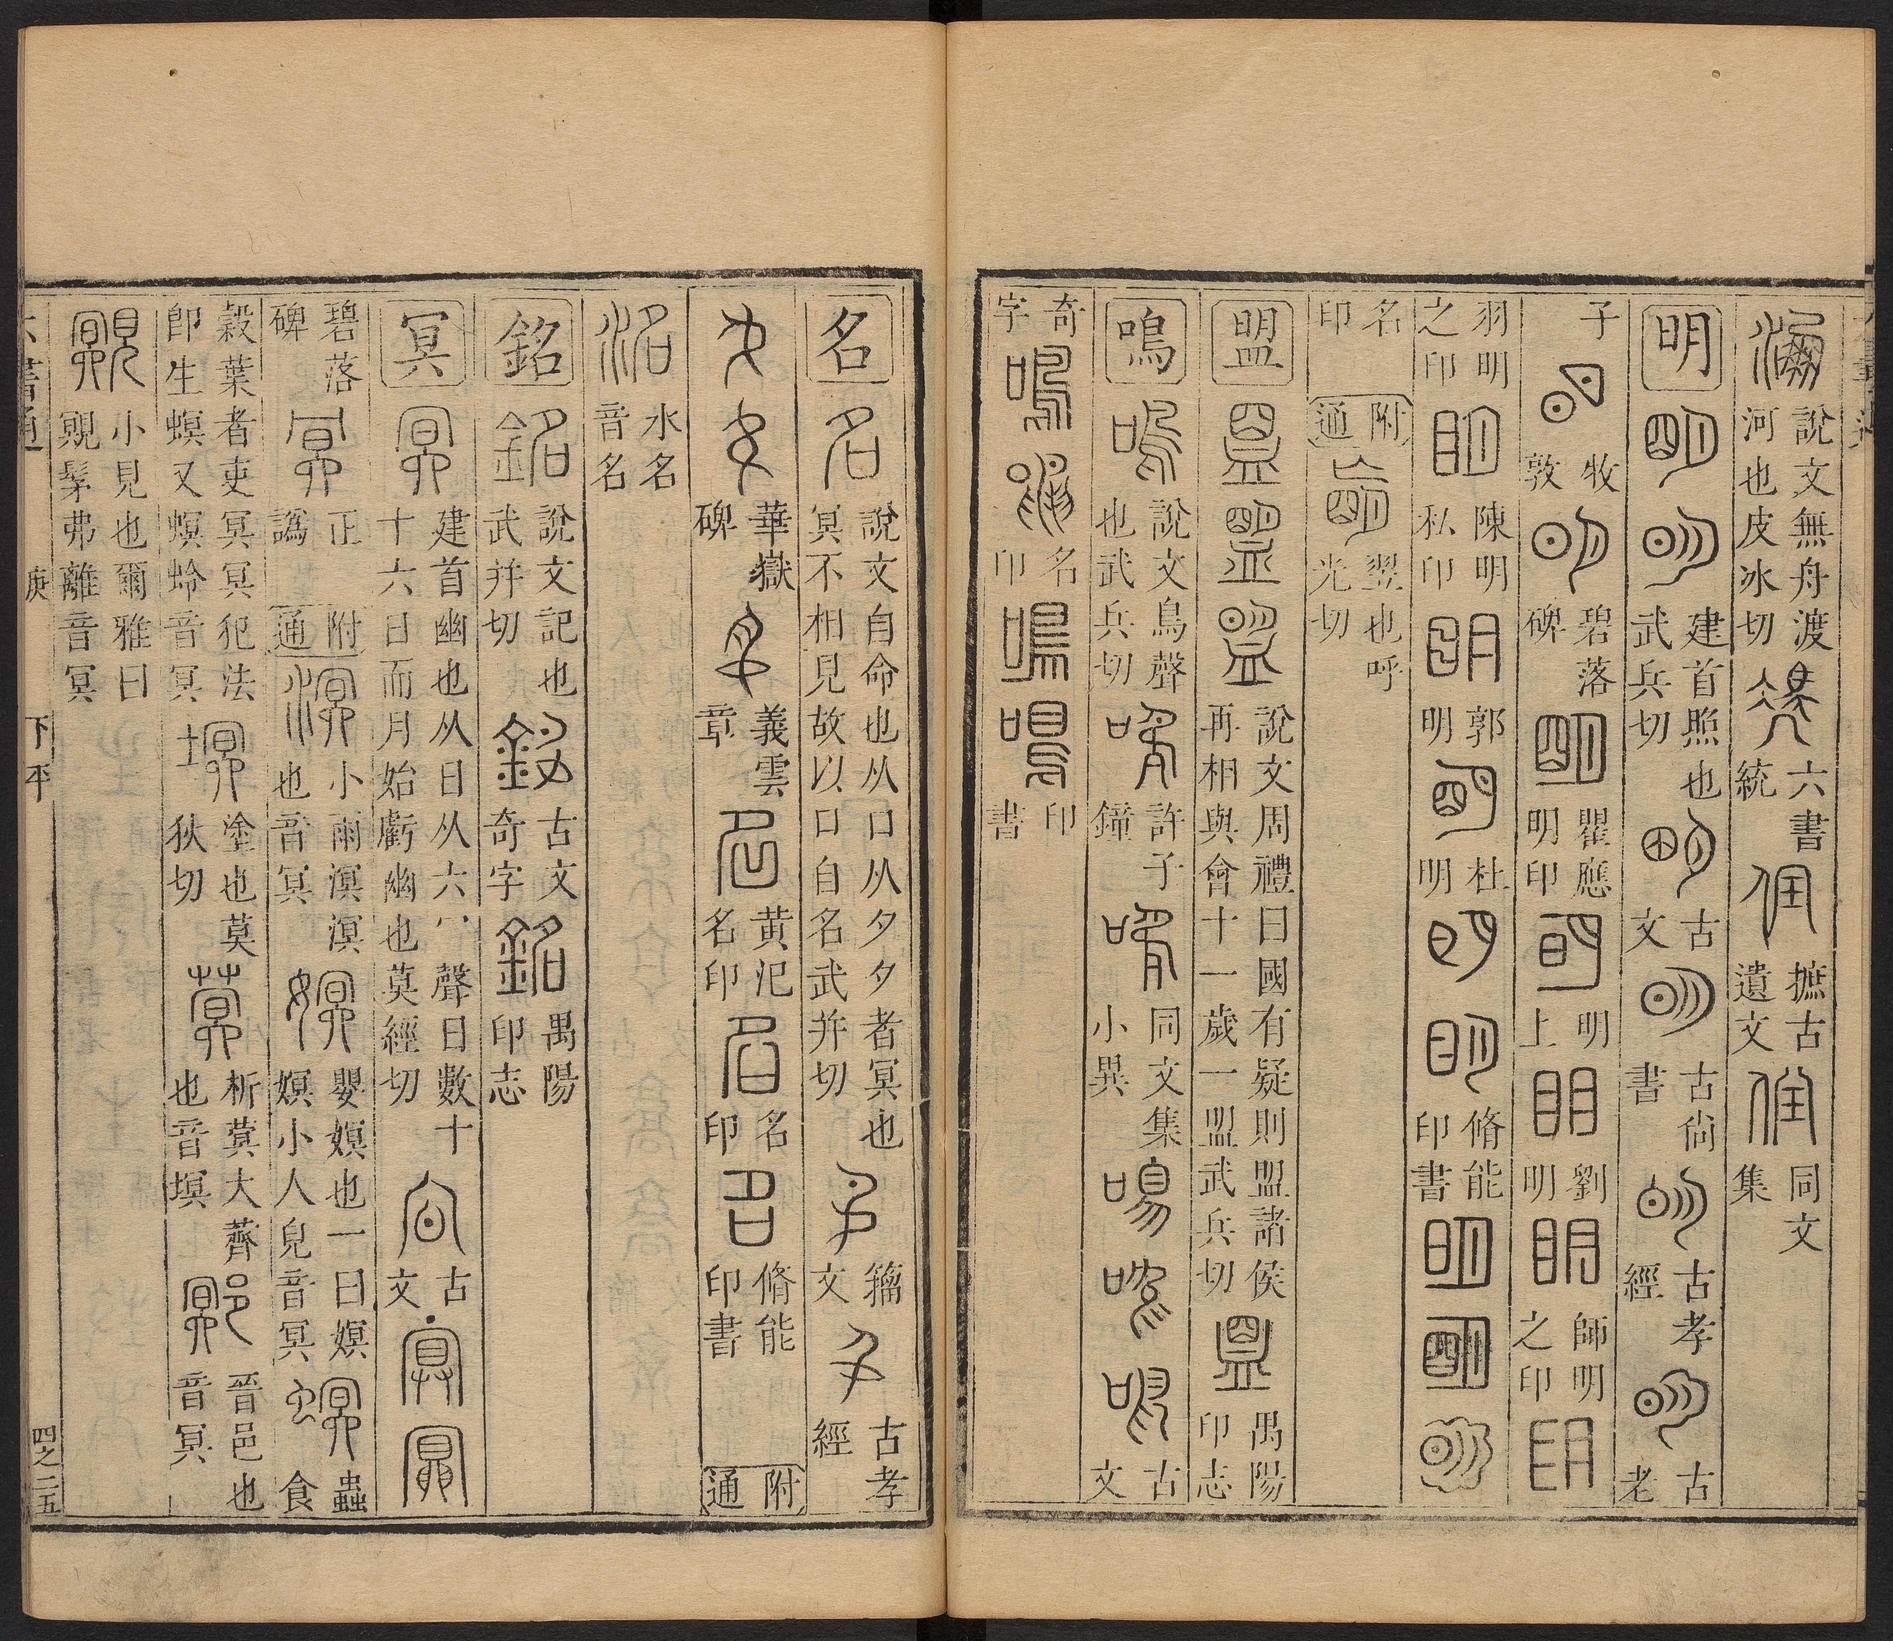 說文無舟渡河也皮冰切 六書統 摭古遺文 同文集
明 建首照也武兵切 古文 古尚書 古孝經 古老
子 牧敦 碧落碑 瞿應明印 明上 劉明 師明之印
羽明之印 陳明私印 郭明 杜明 脩能印書
名印 附通 翌也呼光切
盟 說文周禮曰國有疑則盟諸侯再相與會十一歲一盟武兵切 禺陽印志
鳴 說文鳥聲也武兵切 許子鐘 同文集小異 古文
奇字 名印 印書
名 說文自命也从口从夕夕者冥也冥不相見故以口自名武并切 籀文 古孝經
華嶽碑 義雲章 黃氾名印 名印 脩能印書 附通
洺 水名音名
銘 說文記也武并切 古文奇字 禺陽印志
冥 建首幽也从日从六冖聲日數十十六日而月始虧幽也莫經切 古文
碧落碑 正譌 附通 小雨溟溟也音冥 嫈嫇也一曰嫇嫇小人皃音冥 蟲食
穀葉者吏冥冥犯法卽生螟又螟蛉音冥 塗也莫狄切 析蓂大薺也音塓 晉邑也音冥
小見也爾雅曰覭髳弗離音冥
六書通 庚 下平 四之二五